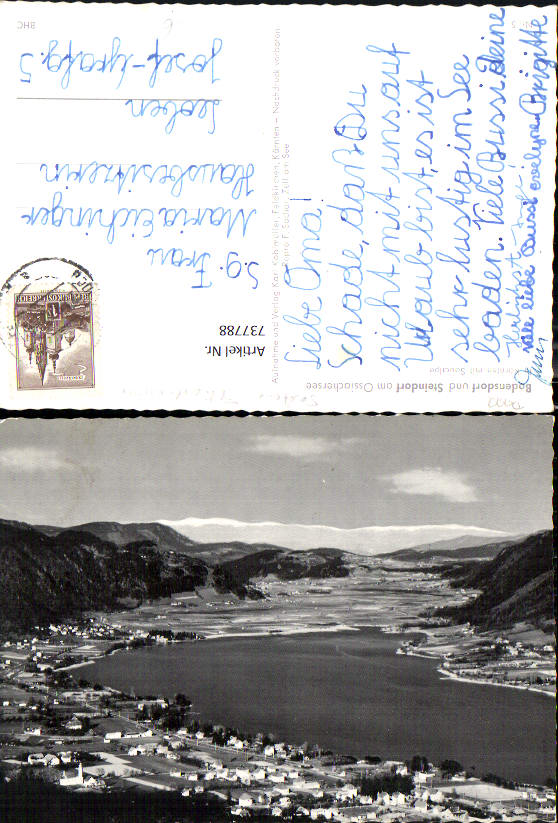 Bodensdorf und Steindorf am Ossiachersee
Kärnten mit Saualpe
Liebe Oma!
Schade, daß Du
nicht mit uns auf
Urlaub bist, es ist
sehr lustig im See
baden. Viele Bussi deine
Brigitte
viele liebe Bussi evelyne
Aufnahme und Verlag Kar
Feldkirchen, Kärnten — Nachdruck verboten
Zell am See
Artikel Nr.
737788
REPUBLIK ÖSTERREICH
S.g. Frau
Maria Eichinger
Hausbesitzerin
Leoben
Josef-Grafg. 5
BHC